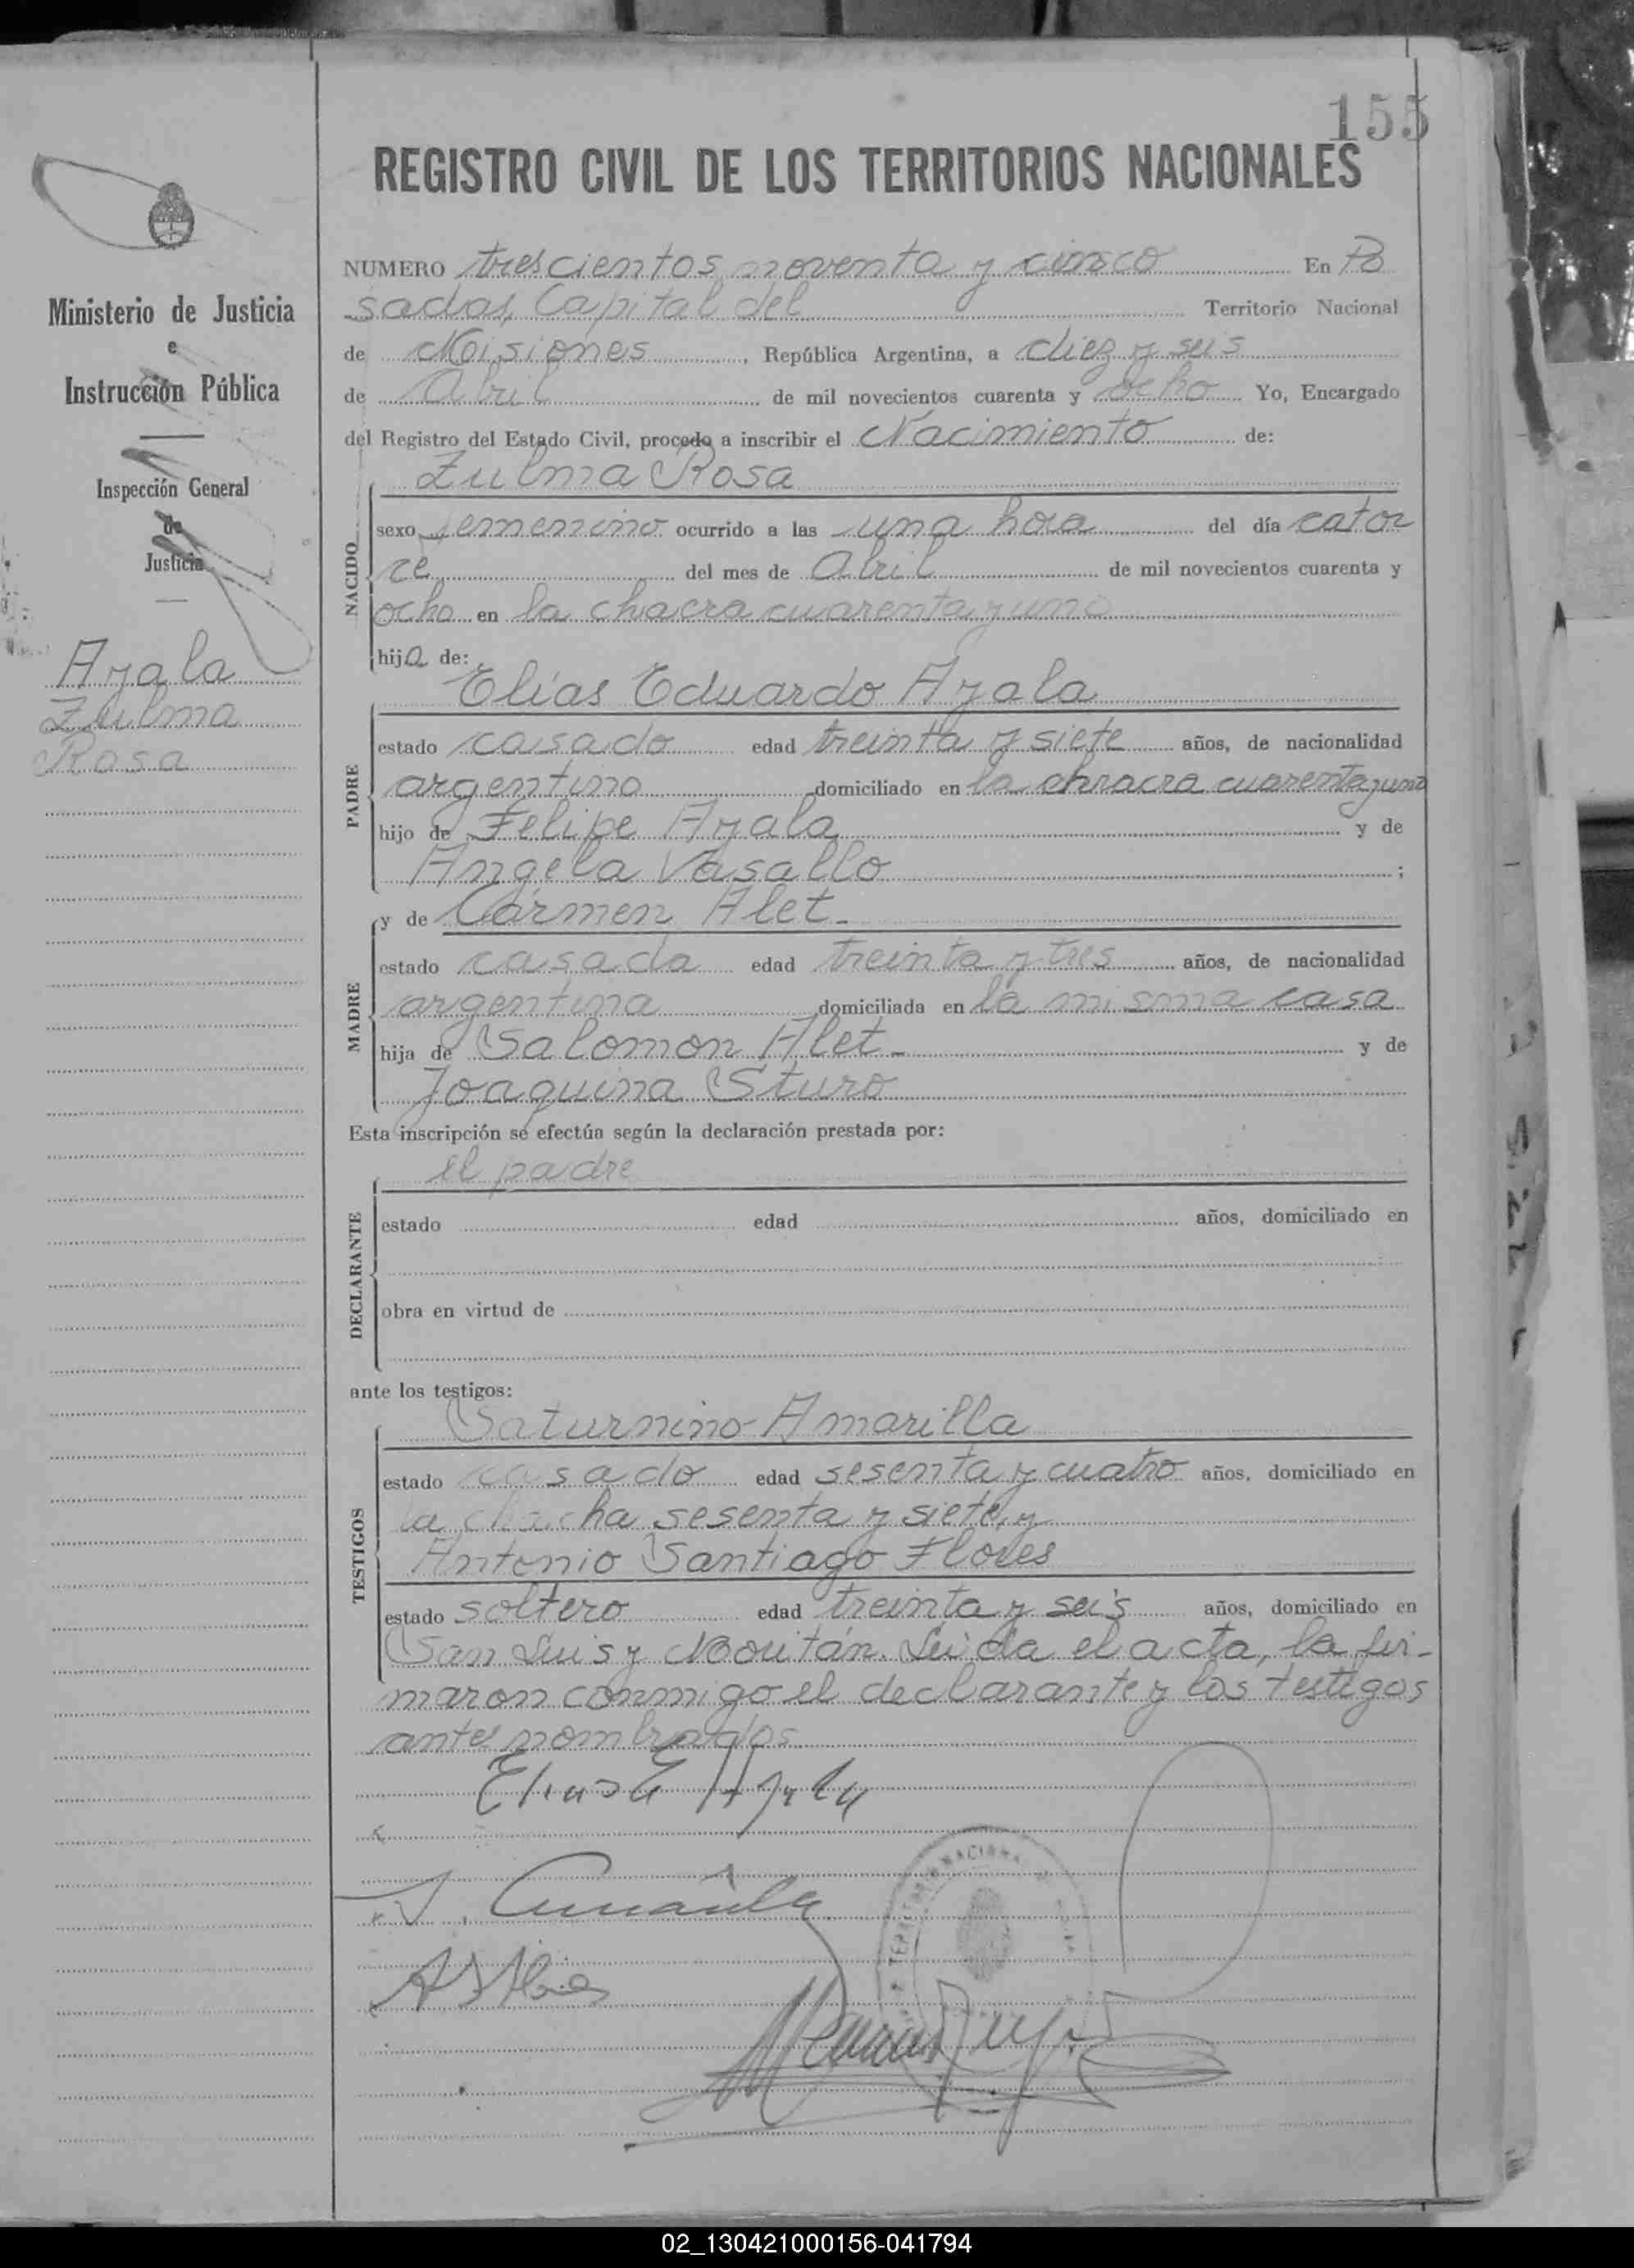 155
REGISTRO CIVIL DE LOS TERRITORIOS NACIONALES
Ministerio de Justicia
e
Instrucción Pública
Inspección General
de
Justicia
Ayala
Zulma
Rosa
NUMERO trescientos noventa y cinco En Po
sadas, Capital del Territorio Nacional
de Misiones, República Argentina, a diez y seis
de Abril de mil novecientos cuarenta y ocho Yo, Encargado
del Registro del Estado Civil, procedo a inscribir el Nacimiento de:
Zulma Rosa
NACIDO
sexo femenino ocurrido a las una hora del día cator
ce del mes de Abril de mil novecientos cuarenta y
ocho en la chacra cuarenta y uno
hija de:
Elías Eduardo Ayala
PADRE
estado casado edad treinta y siete años, de nacionalidad
argentino domiciliado en la chracra cuarenta y uno
hijo de Felipe Ayala y de
Angela Vasallo ;
y de Carmen Alet.
MADRE
estado casada edad treinta y tres años, de nacionalidad
argentina domiciliada en la misma casa
hija de Salomon Alet y de
Joaquina Sturo
Esta inscripción se efectúa según la declaración prestada por:
el padre
DECLARANTE
estado edad años, domiciliado en
obra en virtud de
ante los testigos:
Saturnino Amarilla
TESTIGOS
estado casado edad sesenta y cuatro años, domiciliado en
la chacha sesenta y siete, y
Antonio Santiago Flores
estado soltero edad treinta y seis años, domiciliado en
San Luis y Moritán. Leída el acta, la fir-
maron conmigo el declarante y los testigos
antes nombrados.
Elias E Ayala
S. Amarilla
A S Flores
02_130421000156-041794